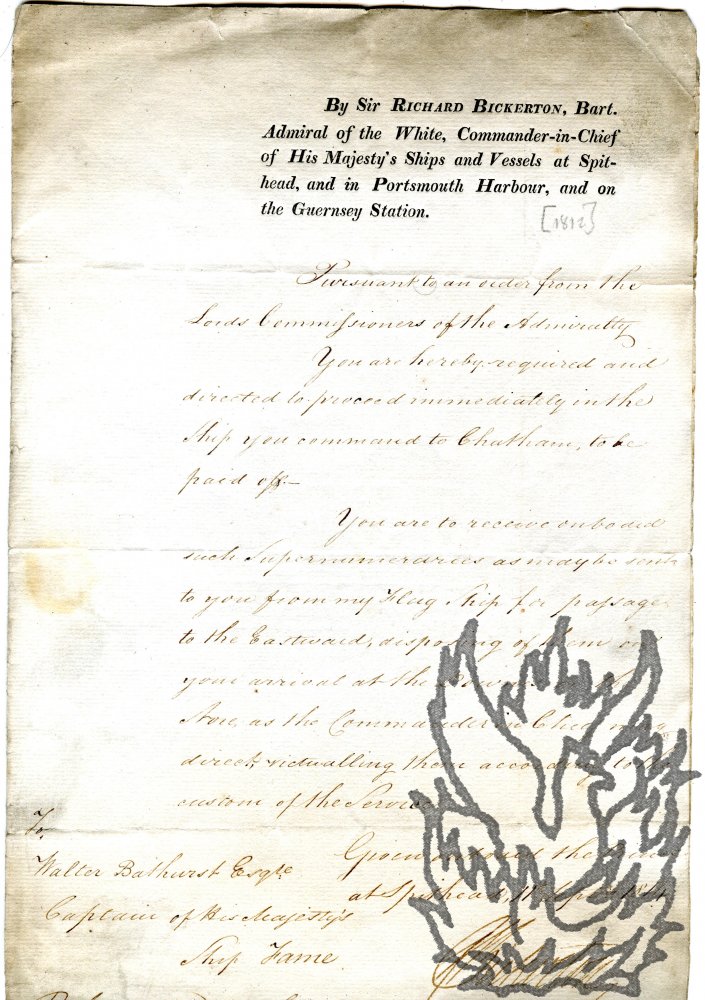 By Sir RICHARD BICKERTON, Bart.
Admiral of the White, Commander-in-Chief
of His Majesty's Ships and Vessels at Spit-
head, and in Portsmouth Harbour, and on
the Guernsey Station.
[1812]
Pursuant to an order from the
Lords Commissioners of the Admiralty
You are hereby required and
directed to proceed immediately in the
Ship you command to Chatham, to be
paid off.—
You are to receive onboard
such Supernumeraries as may be sent
to you from my Flag Ship for passage
to the Eastward, disposing of them on
your arrival at the
Nore, as the Commander in Chief may
direct, victualling them according to the
custom of the Service
To,
Walter Bathurst Esqre.
Captain of His Majesty's
Ship Fame
Given the
at Spithead